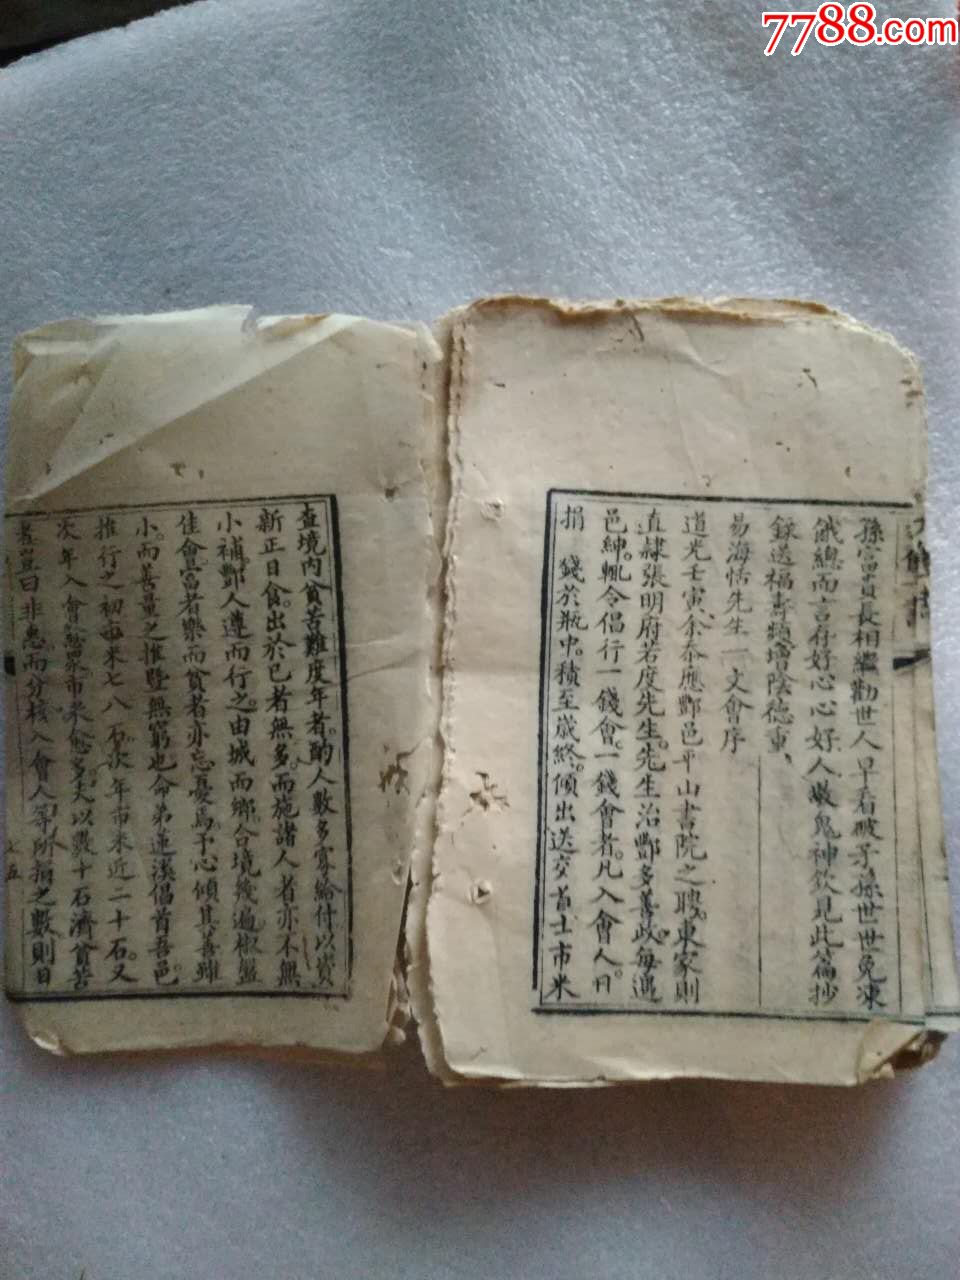 7788.com
孫富貴長相繼勸世人早看破子孫世世免凍
餓總而言存好心心好人敬鬼神欽見此篇抄
錄送福壽頻增陰德重
易海恬先生一文會序
道光壬寅余忝應酆邑平山書院之聘東家則
直隸張明府若度先生先生治酆多善政每遇
邑紳輒令倡行一錢會一錢會者凡入會人日
捐 錢於瓶中積至歲終傾出送交首士市米
查境內貧苦難度年者酌人數多寡給付以資
新正日食出於己者無多而施諸人者亦不無
小補酆人遵而行之由城而鄉合境幾遍椒盤
佳會富者樂而貧者亦忘憂焉予心傾其善雖
小而善量之推暨無窮也命弟蓮溪倡首吾邑
推行之初市米七八石次年市米近二十石又
次年入會愈眾市米愈多夫以數十石濟貧苦
者豈曰非惠而分核入會人等所捐之數則日
十五